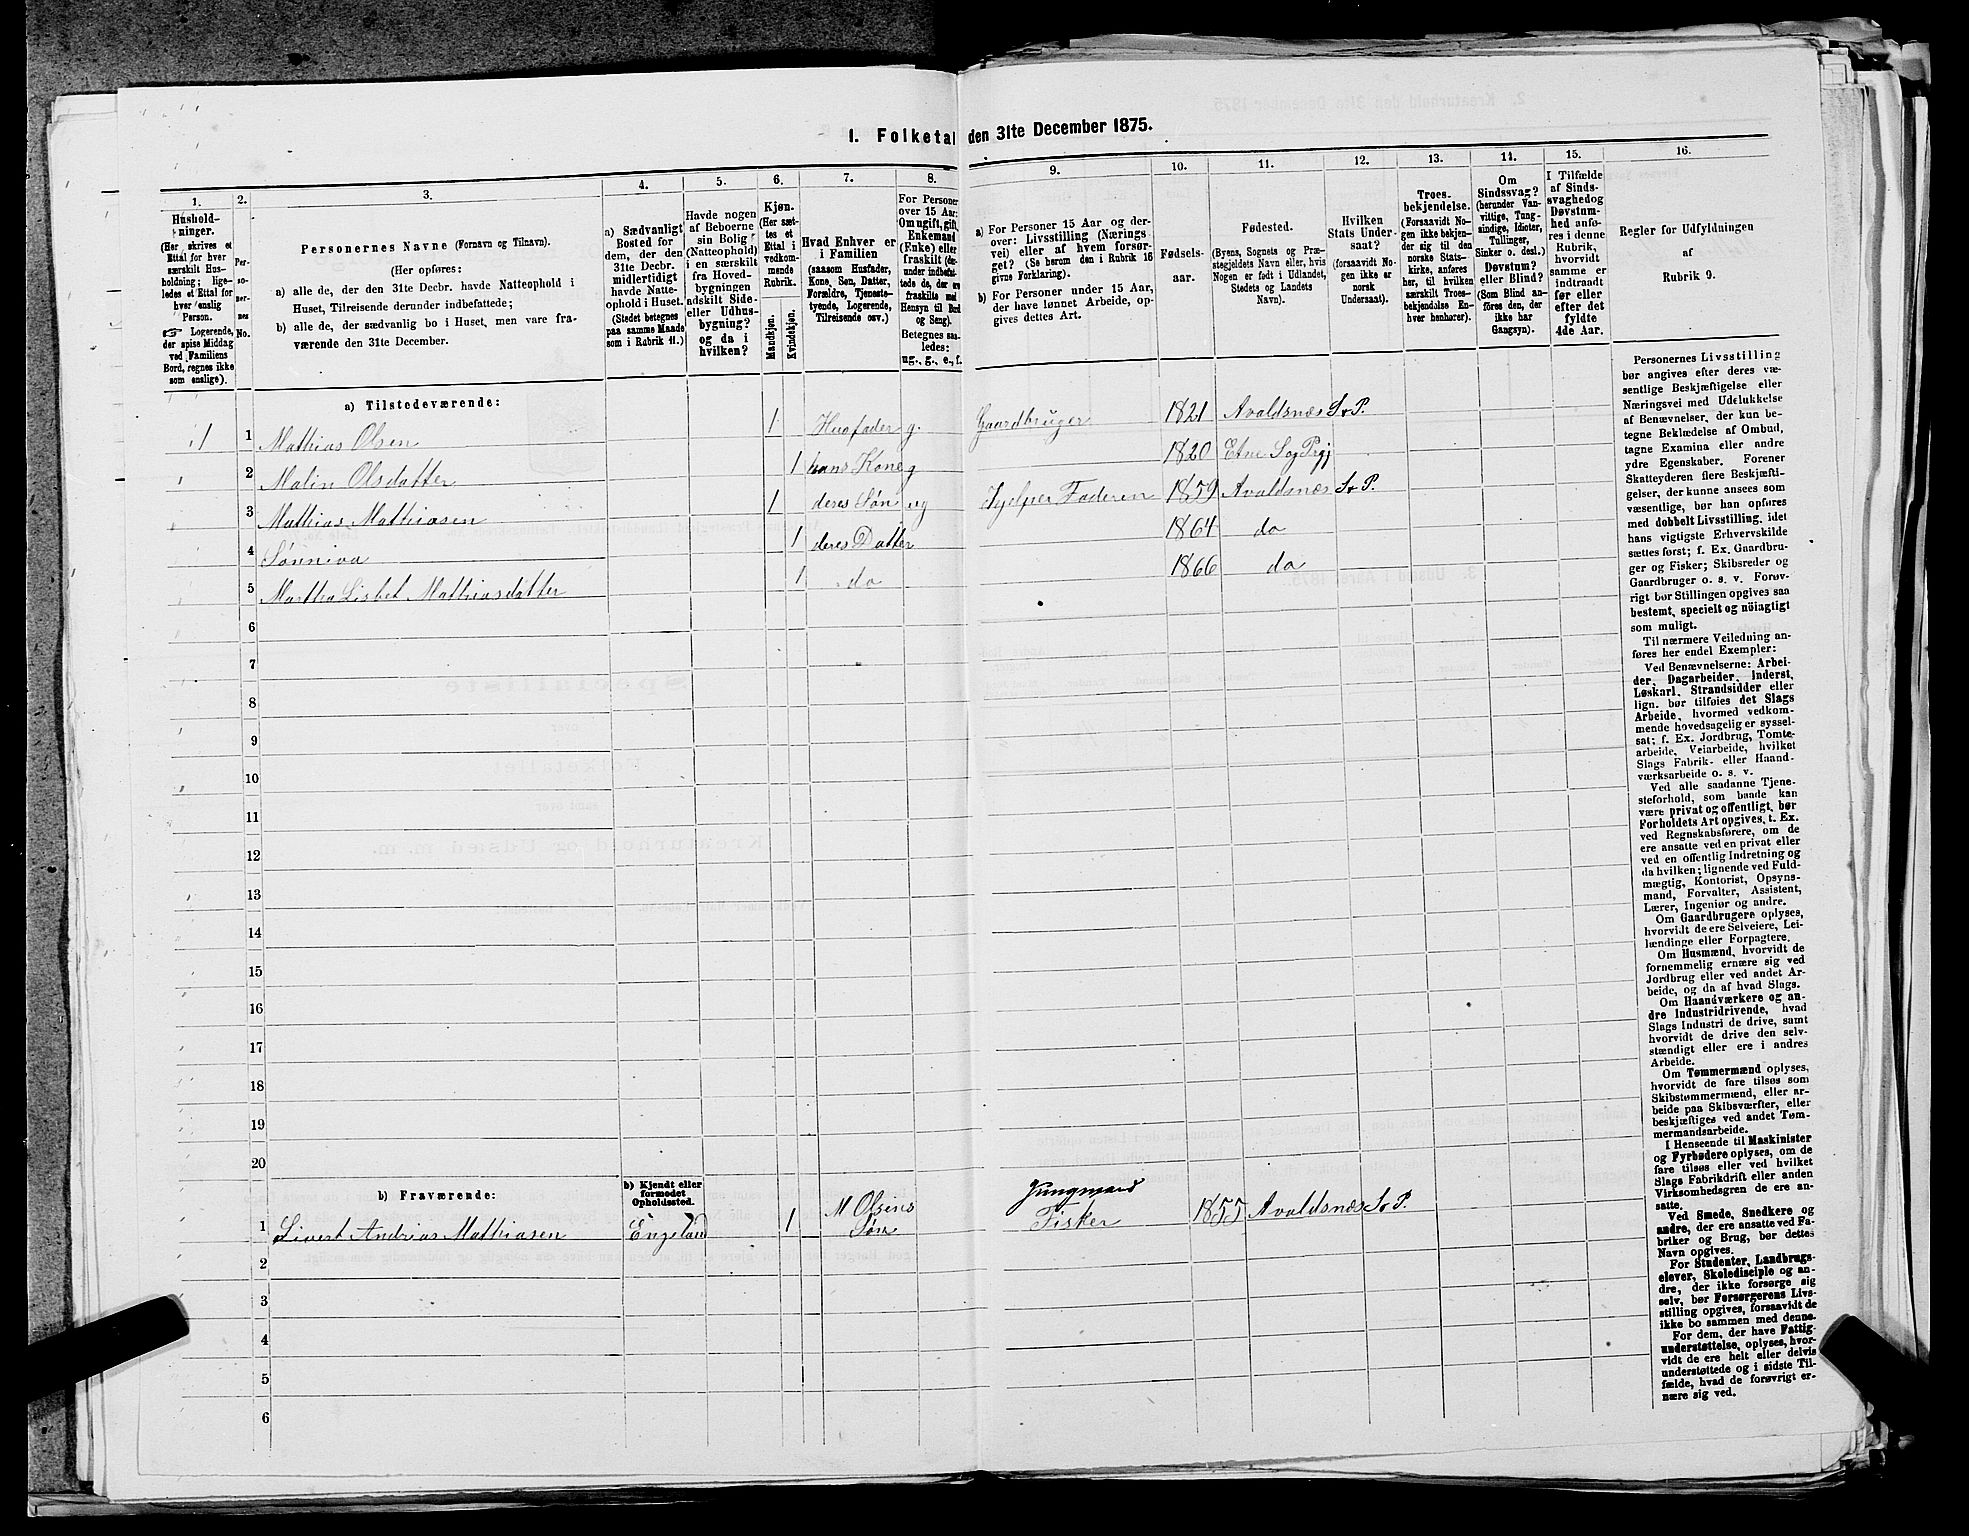 1. Folketal den 31te December 1875.
1.
2.
3.
4.
5.
6.
7.
8.
9.
10.
11.
12.
13.
14.
15.
16.
Hushold-
ninger.
(Her skrives et
Ettal for hver
særskilt Hus-
holdning; lige-
ledes et Ettal for
hver enslig
Person.
☞ Logerende,
der spise Middag
ved Familiens
Bord, regnes ikke
som enslige).
Per-
so-
ner-
nes
No.
Personernes Navne (Fornavn og Tilnavn).
(Her opføres:
a) alle de, der den 31te Decbr. havde Natteophold i
Huset, Tilreisende derunder indbefattede;
b) alle de, der sædvanlig bo i Huset, men vare fra-
værende den 31te December.
a) Sædvanligt
Bosted for
dem, der den
31te Decbr.
midlertidigt
havde Natte-
ophold i Huset.
(Stedet betegnes
paa samme Maade
som i Rubrik 11.)
Havde nogen
af Beboerne
sin Bolig
(Natteophold)
i en særskilt
fra Hoved-
bygningen
adskilt Side-
eller Udhus-
bygning?
og da i
hvilken?
Kjøn.
(Her sæt-
tes et
Ettal i
vedkom-
mende
Rubrik.
Mandkjøn.
Kvindekjøn.
Hvad Enhver er
i Familien
(saasom Husfader,
Kone, Søn, Datter,
Forældre, Tjeneste-
tyende, Logerende,
Tilreisende osv.)
For Personer
over 15 Aar:
Om ugift, gift,
Enkemand
(Enke) eller
fraskilt (der-
under indbefat-
tede de, der ere
fraskilte med
Hensyn til Bord
og Seng).
Betegnes saa-
ledes:
ug., g., e., f.
a) For Personer 15 Aar og der-
over: Livsstilling (Nærings-
vei) eller af hvem forsør-
get? (Se herom den i Rubrik 16
givne Forklaring).
b) For Personer under 15 Aar,
der have lønnet Arbeide, op-
gives dettes Art.
Fødsels-
aar.
Fødested.
(Byens, Sognets og Præ-
stegjeldets Navn eller, hvis
Nogen er født i Udlandet,
Stedets og Landets
Navn).
Hvilken
Stats Under-
saat?
(forsaavidt No-
gen ikke er
norsk
Undersaat).
Troes-
bekjendelse.
(Forsaavidt No-
gen ikke bekjen-
der sig til den
norske Stats-
kirke, anføres
her, til hvilken
særskilt Troes-
bekjendelse En-
hver henhører).
Om
Sindssvag?
(herunder Van-
vittige, Tung-
sindige, Idioter,
Tullinger,
Sinker o. desl.)
Døvstum?
eller Blind?
(Som Blind an-
føres den, der
ikke har
Gangsyn).
I Tilfælde
af Sinds-
svaghed og
Døvstum-
hed anfø-
res i denne
Rubrik,
hvorvidt
samme er
indtraadt
før eller
efter det
fyldte
4de Aar.
Regler for Udfyldningen
af
Rubrik 9.
a) Tilstedeværende:
1 1 Mathias Olsen 1 Husfader g. Gaardbruger 1821 Avaldsnæs S & P.
2 Malin Olsdatter 1 hans Kone g 1820 Etne Sog Prgj
3 Mathias Mathiasen 1 deres Søn ug Hjelper Faderen 1859 Avaldsnæs S & P.
4 Sønniva 1 deres Datter 1864 do
5 Martha Lisbet Mathiasdatter 1 do 1866 do
6
7
8
9
10
11
12
13
14
15
16
17
18
19
20
b) Fraværende:
b) Kjendt eller
formodet
Opholdssted.
1 Sivert Andrias Mathiasen England 1 M Olsens
Søn
Jungmand
Fisker 1855 Avaldsnæs S & P.
2
3
4
5
6
Personernes Livsstilling
bør angives efter deres væ-
sentlige Beskjæftigelse eller
Næringsvei med Udelukkelse
af Benævnelser, der kun be-
tegne Beklædelse af Ombud,
tagne Examina eller andre
ydre Egenskaber. Forener
Skatteyderen flere Beskjæfti-
gelser, der kunne ansees som
væsentlige, bør han opføres
med dobbelt Livsstilling, idet
hans vigtigste Erhvervskilde
sættes først; f. Ex. Gaardbru-
ger og Fisker; Skibsreder og
Gaardbruger o. s. v. Forøv-
rigt bør Stillingen opgives saa
bestemt, specielt og nøiagtigt
som muligt.
Til nærmere Veiledning an-
føres her endel Exempler:
Ved Benævnelserne: Arbei-
der, Dagarbeider, Inderst,
Løskarl, Strandsidder eller
lign. bør tilføies det Slags
Arbeide, hvormed vedkom-
mende hovedsagelig er syssel-
sat; f. Ex. Jordbrug, Tomte-
arbeide, Veiarbeide, hvilket
Slags Fabrik- eller Haand-
værksarbeide o. s. v.
Ved alle saadanne Tjene-
steforhold, som baade kan
være privat og offentligt, bør
Forholdets Art opgives, t. Ex.
ved Regnskabsførere, om de
ere ansatte ved en privat eller
ved en offentlig Indretning og
da hvilken; lignende ved Fuld-
mægtig, Kontorist, Opsyns-
mand, Forvalter, Assistent,
Lærer, Ingeniør og andre.
Om Gaardbrugere oplyses,
hvorvidt de ere Selveiere, Lei-
lændinge eller Forpagtere.
Om Husmænd, hvorvidt de
fornemmelig ernære sig ved
Jordbrug eller ved andet Ar-
beide, og da af hvad Slags.
Om Haandværkere og an-
dre Industridrivende, hvad
Slags Industri de drive, samt
hvorvidt de drive den selv-
stændigt eller ere i andres
Arbeide.
Om Tømmermænd oplyses,
hvorvidt de fare tilsøs som
Skibstømmermænd, eller ar-
beide paa Skibsværfter, eller
beskjæftiges ved andet Tøm-
mermandsarbeide.
I Henseende til Maskinister
og Fyrbødere oplyses, om de
fare tilsøs eller ved hvilket
Slags Fabrikdrift eller anden
Virksomhedsgren de ere an-
satte.
Ved Smede, Snedkere og
andre, der ere ansatte ved Fa-
briker og Brug, bør dettes
Navn opgives.
For Studenter, Landbrugs-
elever, Skoledisciple og an-
dre, der ikke forsørge sig
selv, bør Forsørgerens Livs-
stilling opgives, forsaavidt de
ikke bo sammen med denne.
For dem, der have Fattig-
understøttelse, oplyses, hvor-
vidt de ere helt eller delvis
understøttede og i sidste Til-
fælde, hvad de forøvrigt er-
nære sig ved.